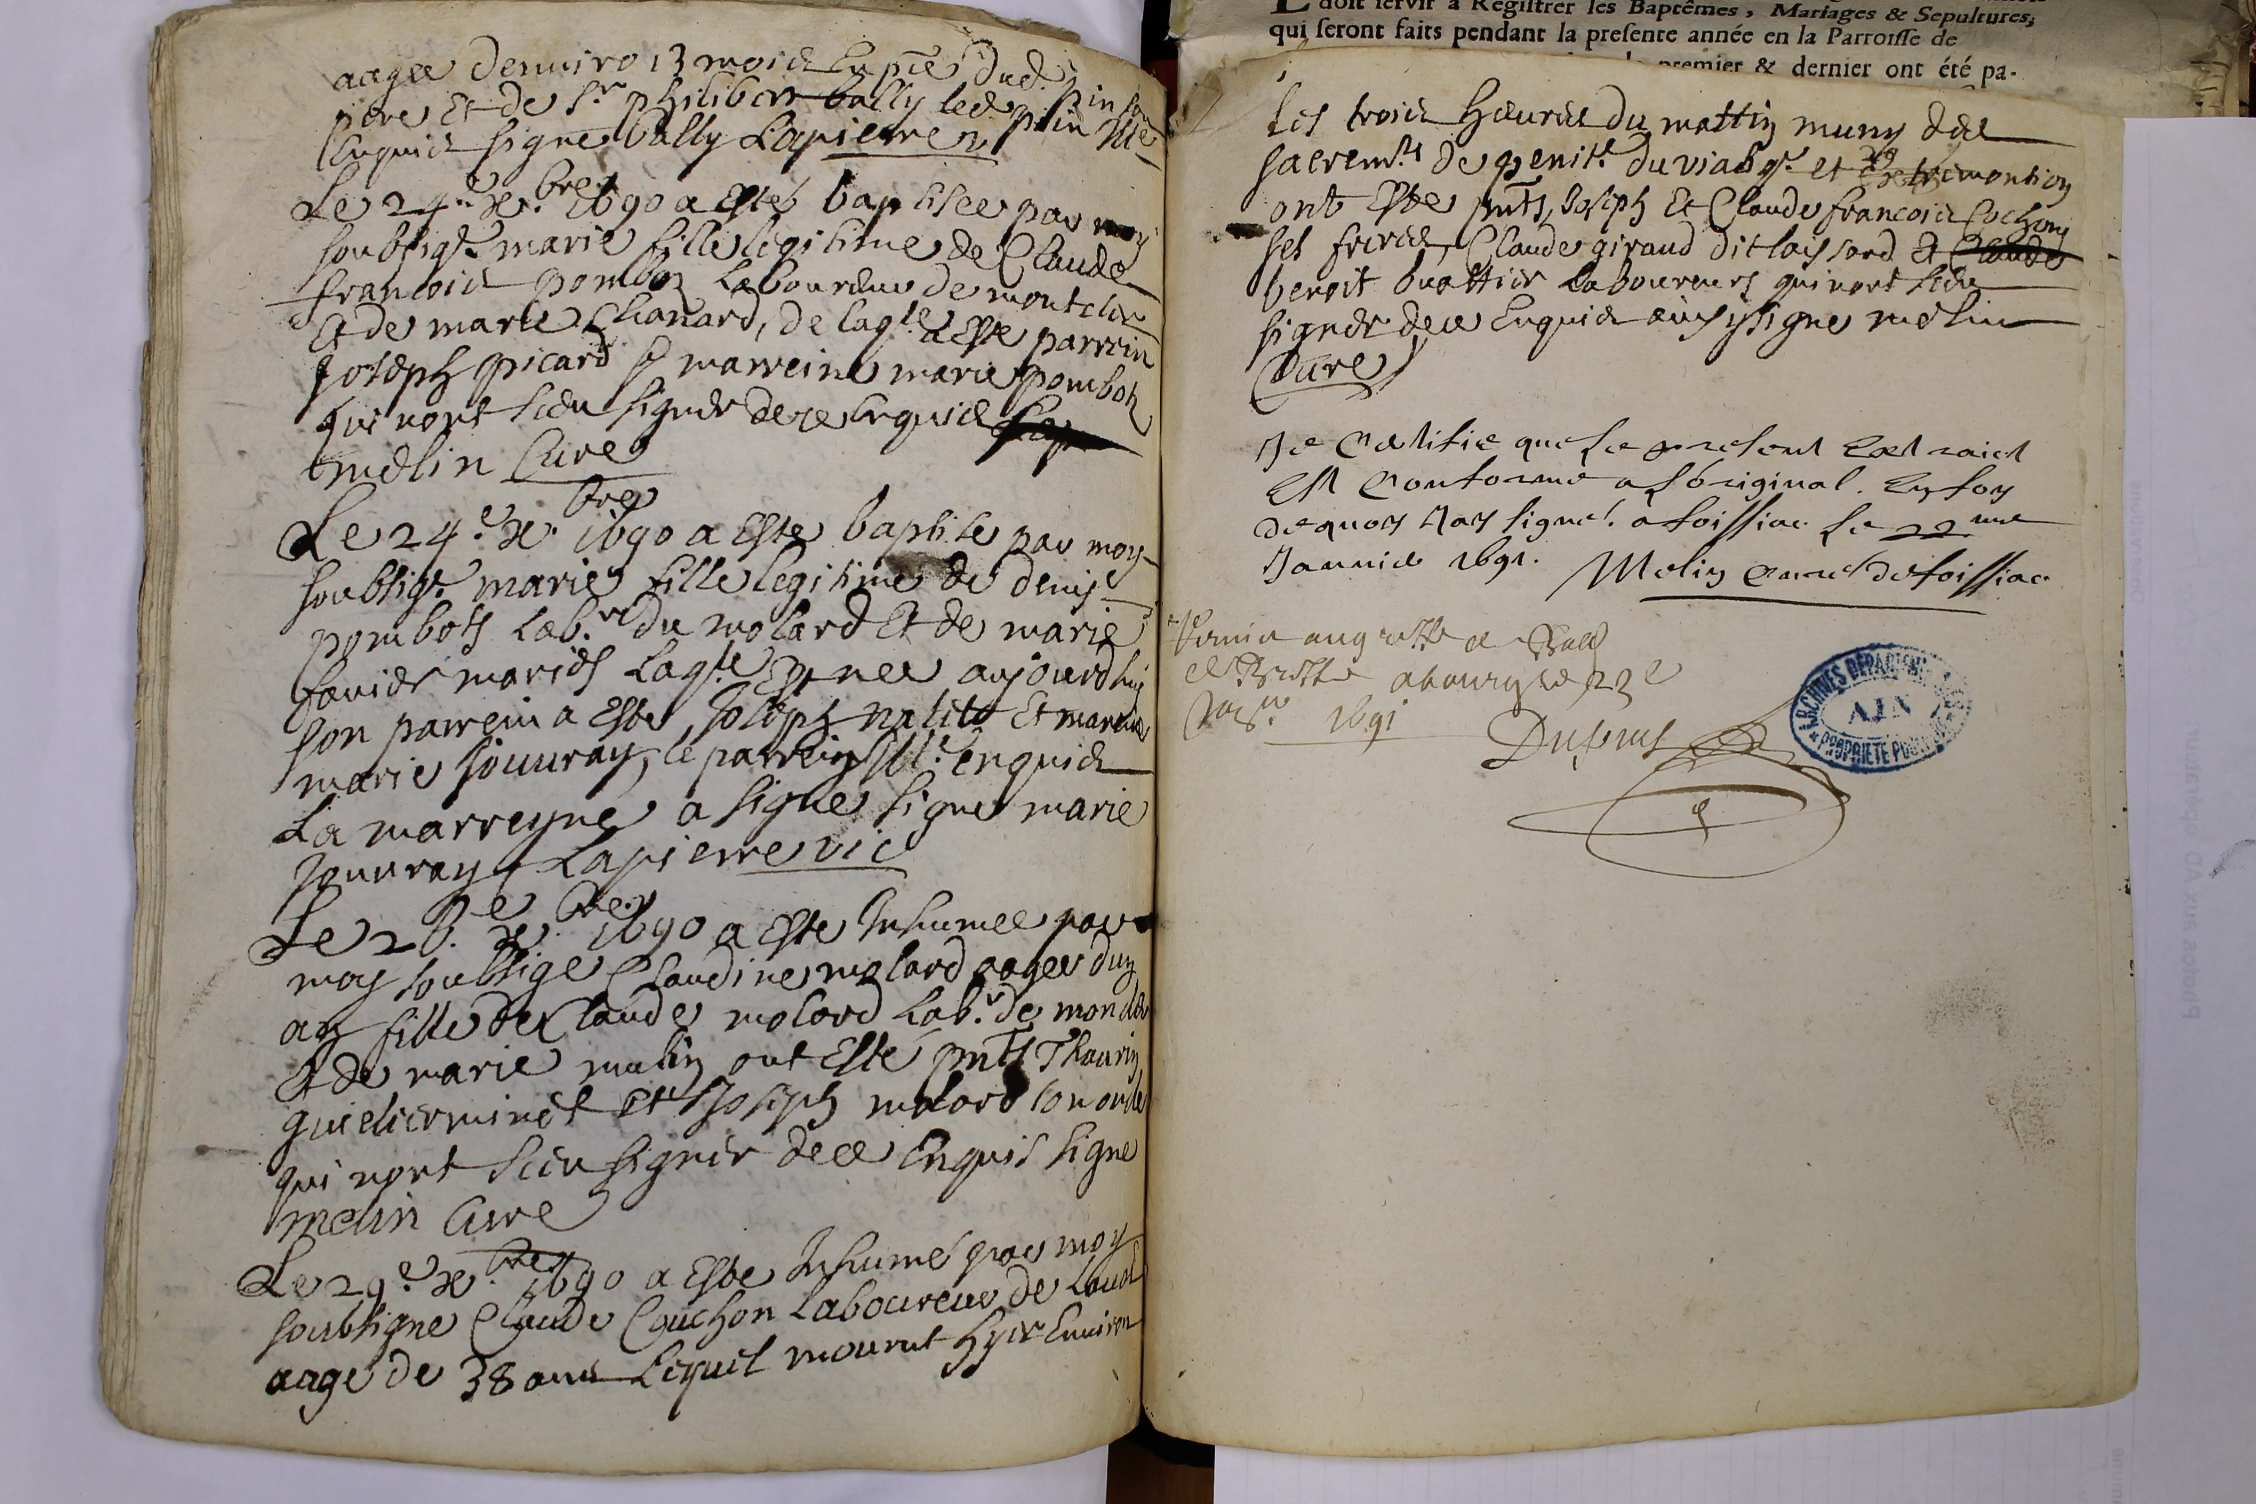 aagee denuiro 13 moid En pñce dud. pin
pere Et de Sr. philibert bally led. pin Ille
Enquid signe bally Lapierre v
Le 24e. xbre 1690 a Este baptisee par moy
soubsigé. marie fille legitime de Claude
francoid pombor Laboureur de montclier
Et de marie Chanard, de laqle. a Este parrein
Joseph picard & marreine marie pombor
qui nont sceu signer de ce Enquid
melin Cure
Le 24e. xbre 1690 a Este baptise par moy
soubsigé. marie fille legitime de denis
pombors Labr. du molard Et de marie
favier maries Laqle. Est nee aujourdhuy
son parrein a Este, Joseph Et marreine
marie jouuray, le parrein Ille. enquid
La marreyne a signe signe marie
jouuray & Lapierre vic
Le 26e. xbre 1690 a Este Inhumee par
moy soubsige Claudine molard aagee dun
an fille de Claude molard Labr. de
Et de marie melin ont Este pñts Thaurin
guiellerminet Et Joseph molard son oncle
qui nont sceu signer de ce Enquis signe
melin Cure
Le 29e. xbre 1690 a Este Inhume par moy
soubsigne Claude Cauchon Laboureur de
aage de 38 ans Lequel mourut hyer Enuiron
doit servir à Regiſtrer les Baptêmes, Mariages & Sepultures,
qui ſeront faits pendant la preſente année en la Parroiſſe de
premier & dernier ont été pa-
Les troid heured du mattin muny ded
sacremts de penite. du viatiqe. et extremontion
ont Este pñts, Joseph Et Claude francoid Cochon
ses frered, Claude giraud dit Et Claude
benoit buattier Laboureurs qui nont sceu
signer de ce Enquid ainsy signe melin
Cure
Je Certifie que le present Extraict
Est Conforme a Loriginal. En foy
dequoy Jay signe. a foissiac Le 22me
Januier 1691. Melin Cure de foissiac
a bourg le 23e
1691
Dupuis
ARCHIVES DEPARTEMENTALES
AIN
PROPRIETE PUBLIQUE